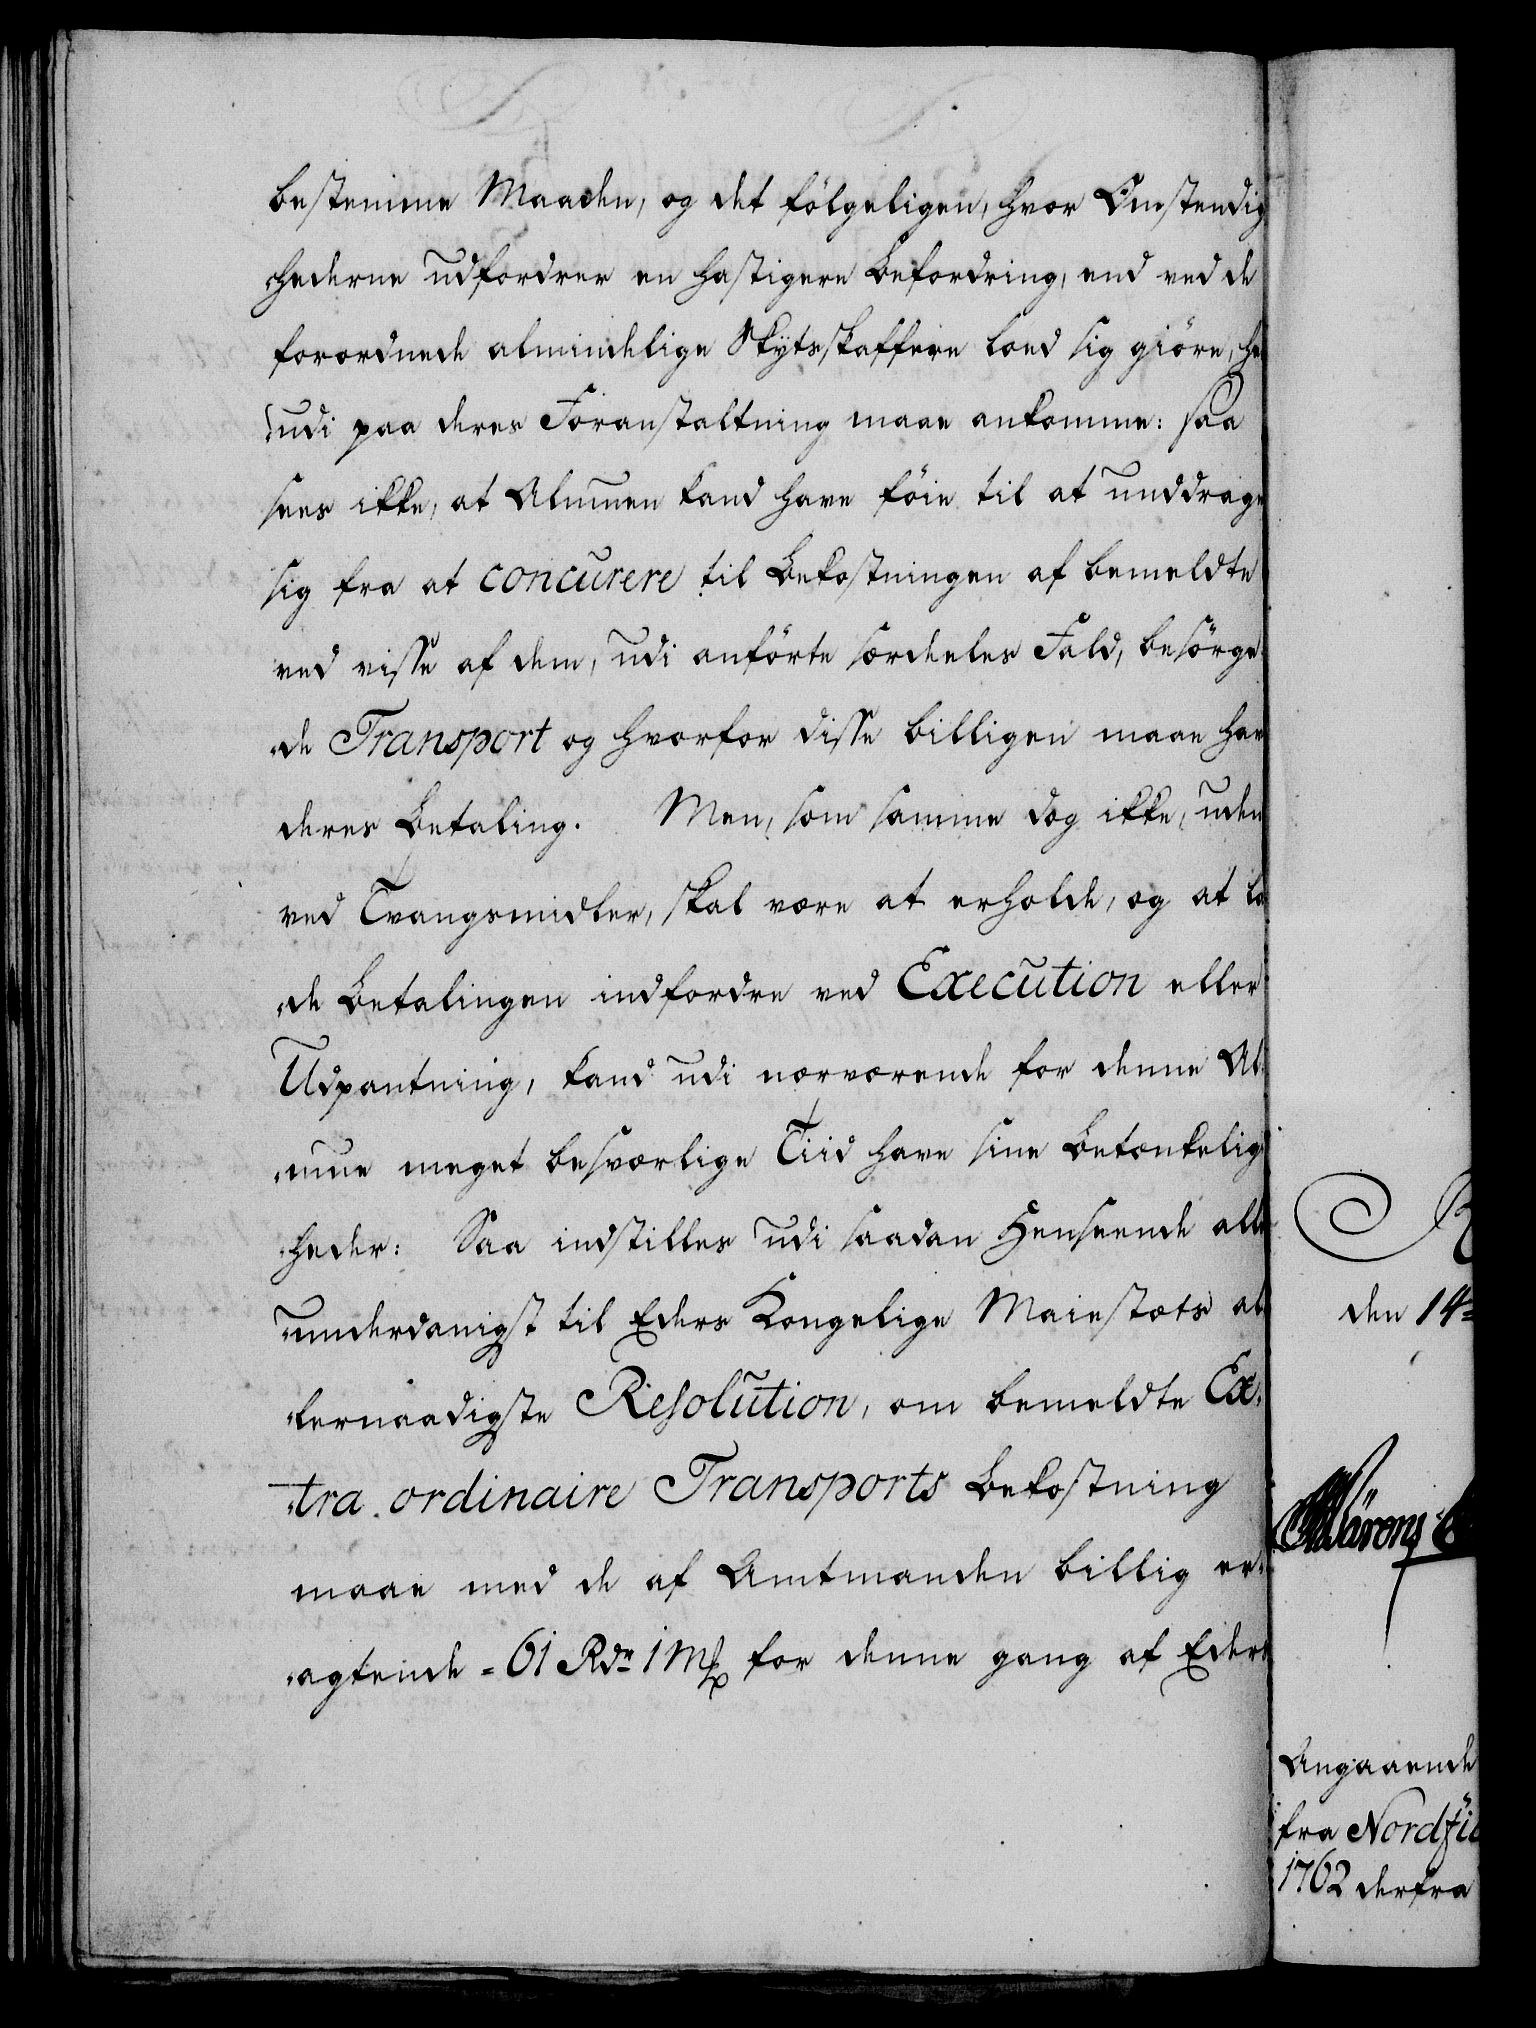 bestemme Maaden, og det fölgeligen, hvor Omstendig
hederne udfordrer en hastigere Befordring, end ved de
forordnede almindelige Skytsskaffere loed sig giöre, he
udi paa deres Foranstaltning maae ankomme: saa
sees ikke, at Almuen kand have föie til at unddrage
sig fra at concurere til Bekostningen af bemeldte
ved visse af dem, udi anförte særdeeles Fald, besörge
de Transport og hvorfor disse billigen maae hav
deres Betaling. Men, som samme dog ikke, uden
ved Tvangsmidler, skal være at erholde, og at la
de Betalingen indfordre ved Execution eller
Udpantning, kand udi nærværende for denne Al
mue meget besværlige Tiid have sine Betænkelig
heder: Saa indstilles udi saadan Henseende alle
underdanigst til Eders Kongelige Maiestæts al
lernaadigste Resolution, om bemeldte Ex
tra ordinaire Transports Bekostning
maae med de af Amtmanden billig er
agtende 61 Rdr 1 Mk for denne gang af Eders
den 14
Angaaende
fra Nordfi
1762 derfra